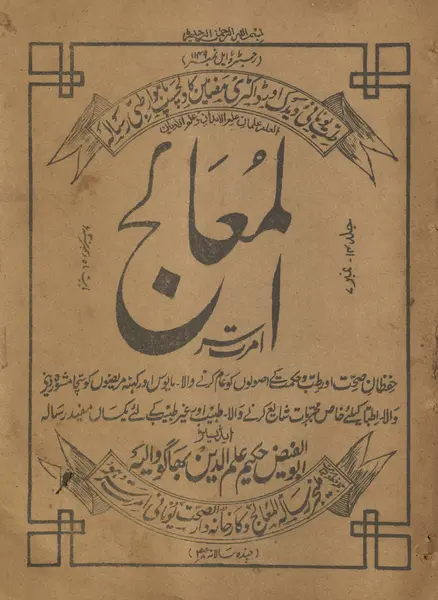 بسم اللہ الرحمٰن الرحیم
(رجسٹرڈ ایل نمبر ۱۱۴۹)
طب یونانی ویدک اور ڈاکٹری مضامین کا دلچسپ ماہوار طبی رسالہ
العلم علمان علم الابدان وعلم الادیان
المعالج
امرت سر
جلد ۱۳ - نمبر ۷
حفظان صحت اور طب و حکمت کے اصولوں کو عام کرنے والا۔ مایوس اور کہنہ مریضوں کو سچا مشورہ دینے
والا۔ اطبا کیلئے خاص مجربات شایع کرنے والا۔ طبیب اور غیر طبیب کے لئے یکساں مفید رسالہ
ایڈیٹر
ابوالفیض حکیم علم الدین بھاگووالیہ
منیجر رسالہ المعالج وکارخانہ دارالصحت یونانی امرت سر
چندہ سالانہ